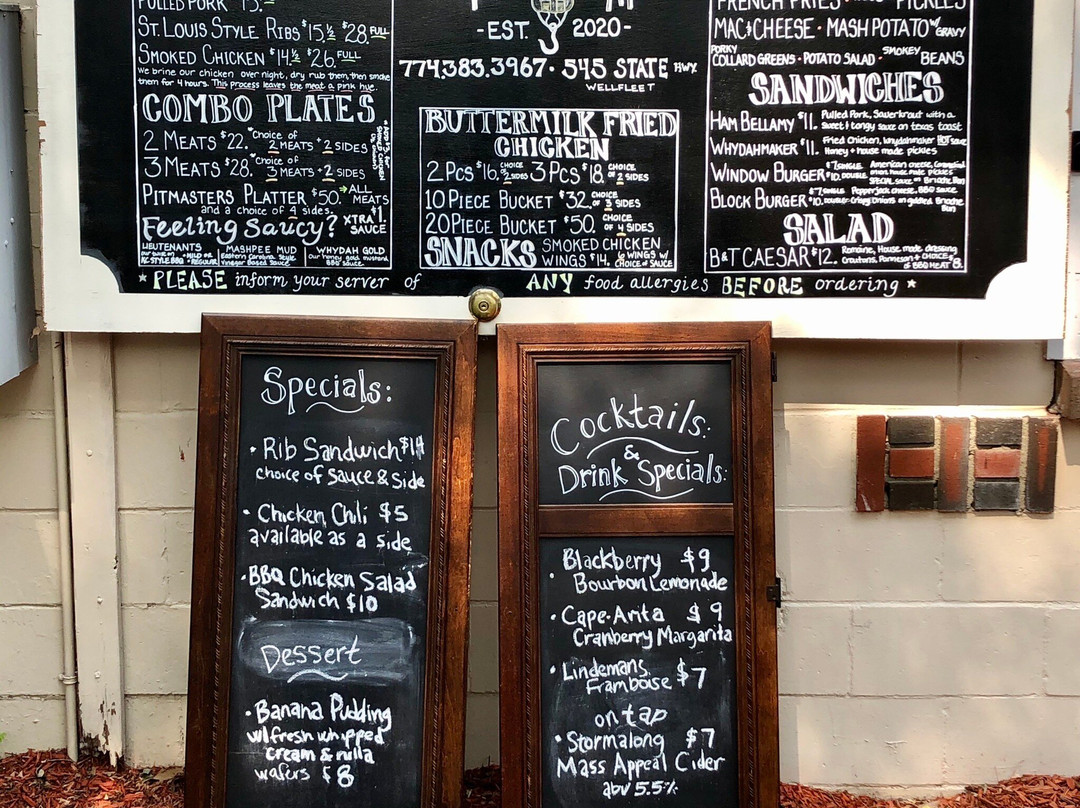 PULLED PORK 15.
ST. LOUIS STYLE RIBS $15 ½ $28. FULL
SMOKED CHICKEN $14. ½ $26. FULL
We brine our chicken over night, dry rub them, then smoke
them for 4 hours. This process leaves the meat a pink hue.
COMBO PLATES
2 MEATS $22. *Choice of
2 MEATS + 2 SIDES
3 MEATS $28. *Choice of
3 MEATS + 2 SIDES
PITMASTERS PLATTER $50. ALL MEATS
and a choice of 4 sides.
Feeling Saucy? XTRA $1. SAUCE
LIEUTENANTS
NC STYLE BBQ • REGULAR
MASHPEE MUD
Eastern Carolina Style
Vinegar Based Sauce
WHYDAH GOLD
our honey gold mustard
BBQ Sauce
-EST. 2020-
774.383.3967 • 545 STATE Hwy.
WELLFLEET
BUTTERMILK FRIED
CHICKEN
2 Pcs $16. CHOICE OF 2 SIDES 3 Pcs $18. CHOICE OF 2 SIDES
10 PIECE BUCKET $32. CHOICE OF 3 SIDES
20 PIECE BUCKET $50. CHOICE OF 4 SIDES
SNACKS SMOKED CHICKEN
WINGS $14. 6 WINGS W/ CHOICE of SAUCE
FRENCH FRIES PICKLES
MAC & CHEESE • MASH POTATO W/ GRAVY
PORKY COLLARD GREENS • POTATO SALAD • SMOKEY BEANS
SANDWICHES
HAM BELLAMY $11. Pulled Pork, Sauerkraut with a
sweet & tangy sauce on texas toast
WHYDAHMAKER $11. Fried Chicken, Whydahmaker HOT sauce
Honey + house made pickles
WINDOW BURGER $7. SINGLE $10. DOUBLE American cheese, Caramelized
onions house made pickles
SPECIAL sauce on Brioche Bun
BLOCK BURGER $7. SINGLE $10. DOUBLE Pepperjack cheese, BBQ Sauce
Crispy Onions on grilled Brioche
Bun
SALAD
B&T CAESAR $12. Romaine, House made dressing
Croutons, Parmesan + CHOICE
of BBQ MEAT $8.
* PLEASE inform your server of ANY food allergies BEFORE ordering *
Specials:
• Rib Sandwich $14
choice of Sauce & Side
• Chicken Chili $5
available as a side
• BBQ Chicken Salad
Sandwich $10
Dessert
• Banana Pudding
w/ fresh whipped
cream & nilla
wafers $8
Cocktails:
&
Drink Specials:
• Blackberry $9
Bourbon Lemonade
• Cape-Arita $9
Cranberry Margarita
• Lindemans $7
Framboise
on tap
• Stormalong $7
Mass Appeal Cider
abv 5.5%